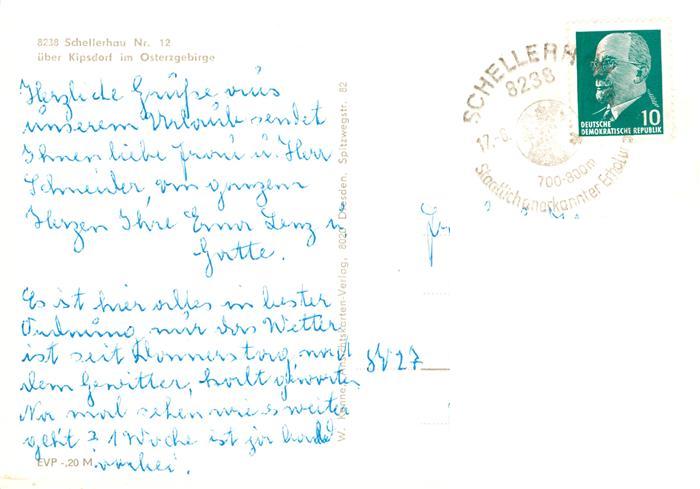 8238 Schellerhau Nr. 12
über Kipsdorf im Osterzgebirge
Herzliche Grüße aus
unserem Urlaub sendet
Ihnen liebe Frau u. Herr
Schneider, von ganzem
Herzen Ihre Erna Lenz u
Gatte.
Es ist hier alles in bester
Ordnung, nur das Wetter
ist seit Donnerstag, nach
dem Gewitter, kalt geworden
Na mal sehen wie es weiter
geht? 1 Woche ist ja bald
vorbei.
EVP -,20 M
Ansichtskarten-Verlag, 8020 Dresden, Spitzwegstr. 82
SCHELLERH
8238
17.-8.
700-800m
Staatlich anerkannter Erholu
10
DEUTSCHE
DEMOKRATISCHE REPUBLIK
27